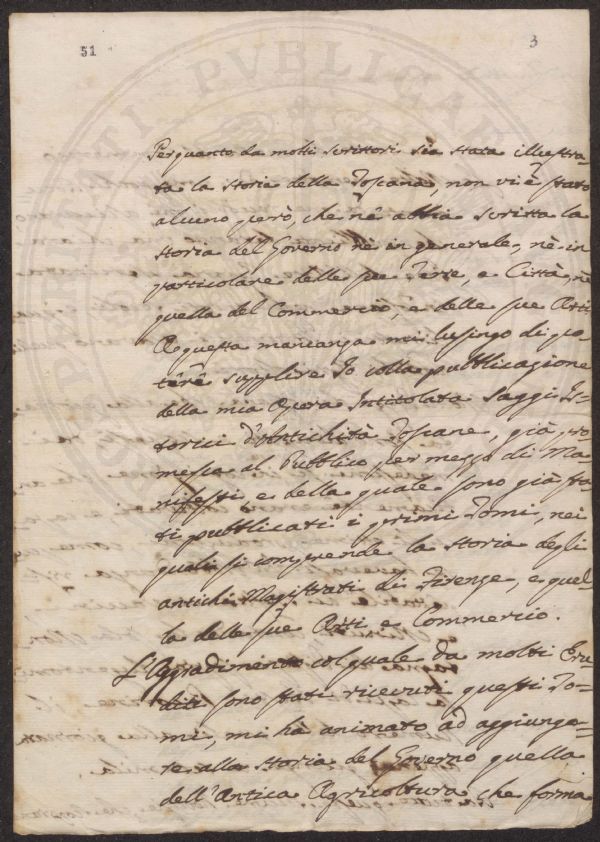 51
3
Per quanto da molti scrittori sia stata illustra-
ta la storia della Toscana, non vi è stato
alcuno però, che ne abbia scritta la
storia del Governo nè in generale, nè in
particolare delle sue Terre, e Città, nè
quella del Commercio, e delle sue Arti
A questa mancanza mi lusingo di po-
tere supplire Io colla pubblicazione
della mia Opera Intitolata Saggi Is-
torici d'Antichità Toscane, già pro-
messa al Pubblico per mezzo di Ma-
nifesti, e della quale sono già sta-
ti pubblicati i primi Tomi, nei
quali si comprende la storia degli
antichi Magistrati di Firenze, e quel-
la delle sue Arti e Commercio.
L'Aggradimento col quale da molti Eru-
diti sono stati ricevuti questi To-
mi, mi hà animato ad aggiunge-
re alla storia del Governo quella
dell'Antica Agricoltura che forma